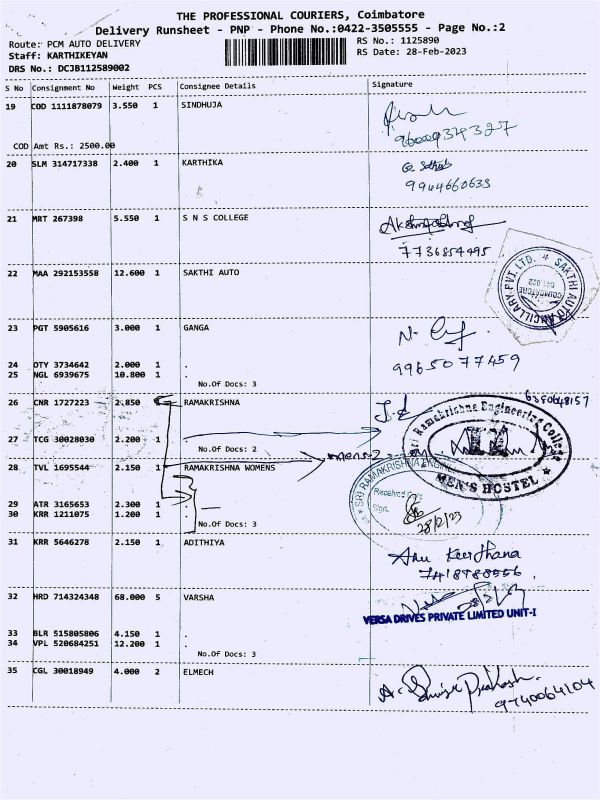 THE PROFESSIONAL COURIERS, Coimbatore
Delivery Runsheet - PNP - Phone No.:0422-3505555 - Page No.:2
Route: PCM AUTO DELIVERY
RS No.: 1125890
Staff: KARTHIKEYAN
RS Date: 28-Feb-2023
DRS No.: DCJB112589002
S No Consignment No Weight PCS Consignee Details Signature
19 COD 1111878079 3.550 1 SINDHUJA
9600934327
COD Amt Rs.: 2500.00
20 SLM 314717338 2.400 1 KARTHIKA
9944660633
21 MRT 267398 5.550 1 S N S COLLEGE
7736854495
22 MAA 292153558 12.600 1 SAKTHI AUTO
SAKTHI AUTO ANCILLARY PVT. LTD.
COIMBATORE
23 PGT 5905616 3.000 1 GANGA
9965077459
24 OTY 3734642 2.000 1 .
25 NGL 6939675 10.800 1 .
No.Of Docs: 3
26 CNR 1727223 2.850 RAMAKRISHNA
Sri Ramakrishna Engineering College
MEN'S HOSTEL
27 TCG 30028030 2.200 1 .
No.Of Docs: 2
28 TVL 1695544 2.150 1 RAMAKRISHNA WOMENS
SRI RAMAKRISHNA
Received
Sign.
28/2/23
29 ATR 3165653 2.300 1 .
30 KRR 1211075 1.200 1 .
No.Of Docs: 3
31 KRR 5646278 2.150 1 ADITHIYA
Anu Keerthana
32 HRD 714324348 68.000 5 VARSHA
VERSA DRIVES PRIVATE LIMITED UNIT-I
33 BLR 515805806 4.150 1 .
34 VPL 520684251 12.200 1 .
No.Of Docs: 3
35 CGL 30018949 4.000 2 ELMECH
9740064104